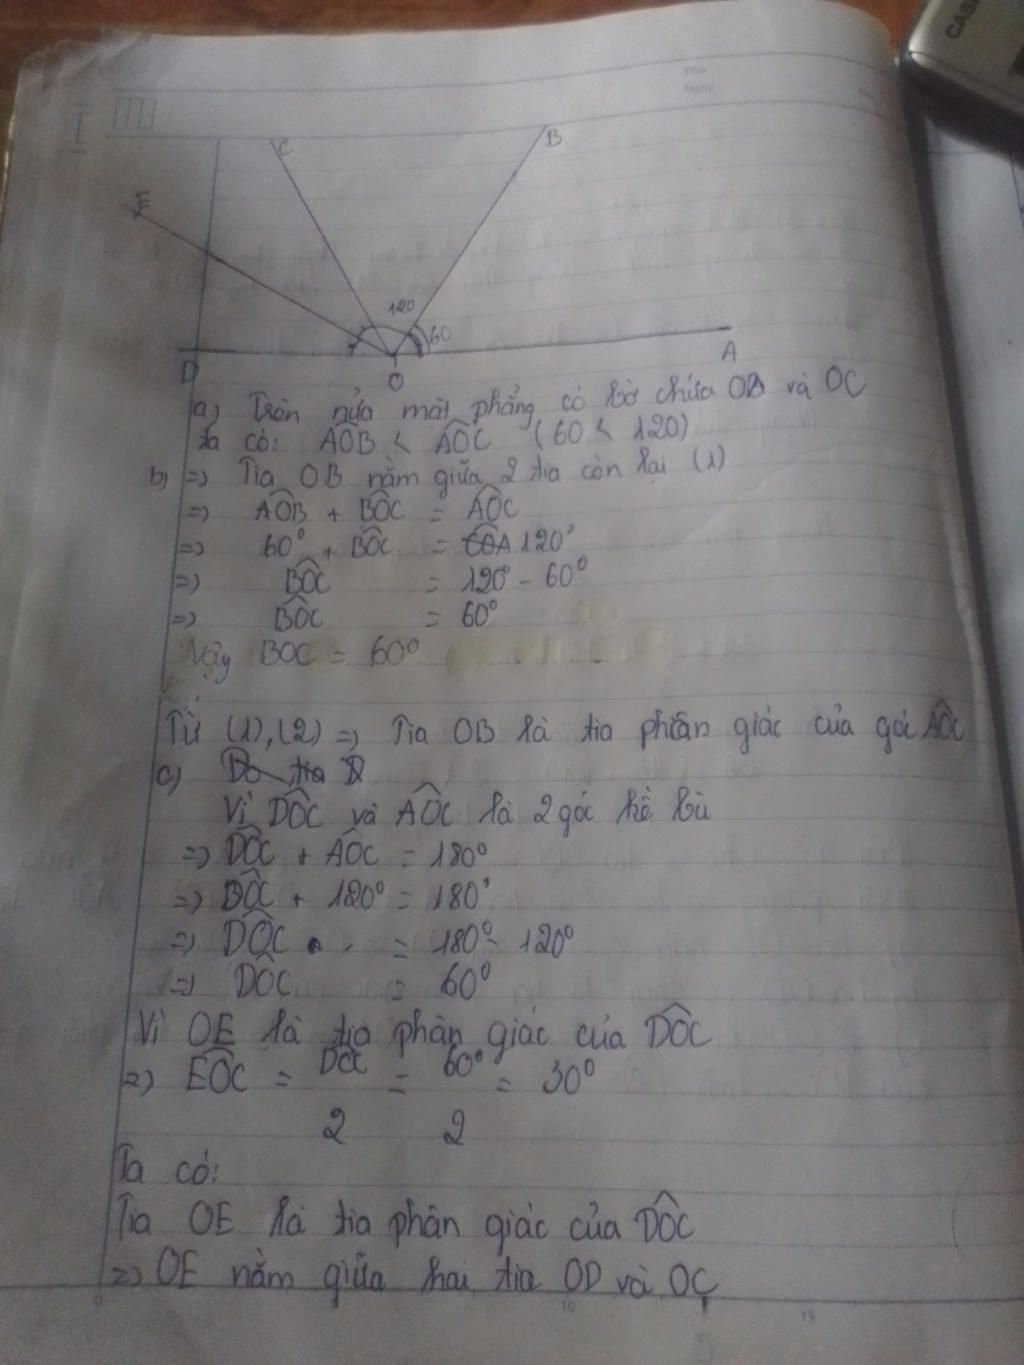 CASIO
THỨ
NGÀY
C
B
E
120
60
D
O
A
a) Trên nửa mặt phẳng có bờ chứa OB và OC
ta có: AÔB < AÔC (60 < 120)
b) => Tia OB nằm giữa 2 tia còn lại (1)
=> AÔB + BÔC = AÔC
=> 60° + BÔC = CÔA 120°
=> BÔC = 120° - 60°
=> BÔC = 60°
Vậy BOC = 60°
Từ (1), (2) => Tia OB là tia phân giác của góc AÔC
c) Do tia D
Vì DÔC và AÔC là 2 góc kề bù
=> DÔC + AÔC = 180°
=> BÔC + 120° = 180°
=> DÔC = 180° - 120°
=> DÔC = 60°
Vì OE là tia phân giác của DÔC
=> EÔC = DOC/2 = 60°/2 = 30°
Ta có:
Tia OE là tia phân giác của DÔC
=> OE nằm giữa hai tia OD và OC
10
15